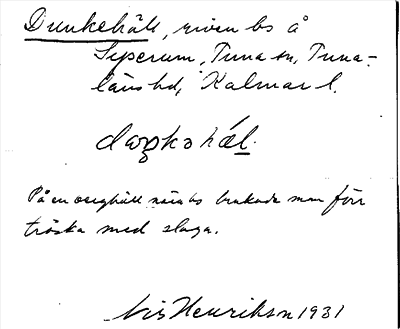 Dunkehäll, riven bs å
Syserum, Tuna sn, Tuna-
läns hd, Kalmar l.
På en berghäll nära bs brukade man förr
tröska med slaga.
Nis Henrikson 1931